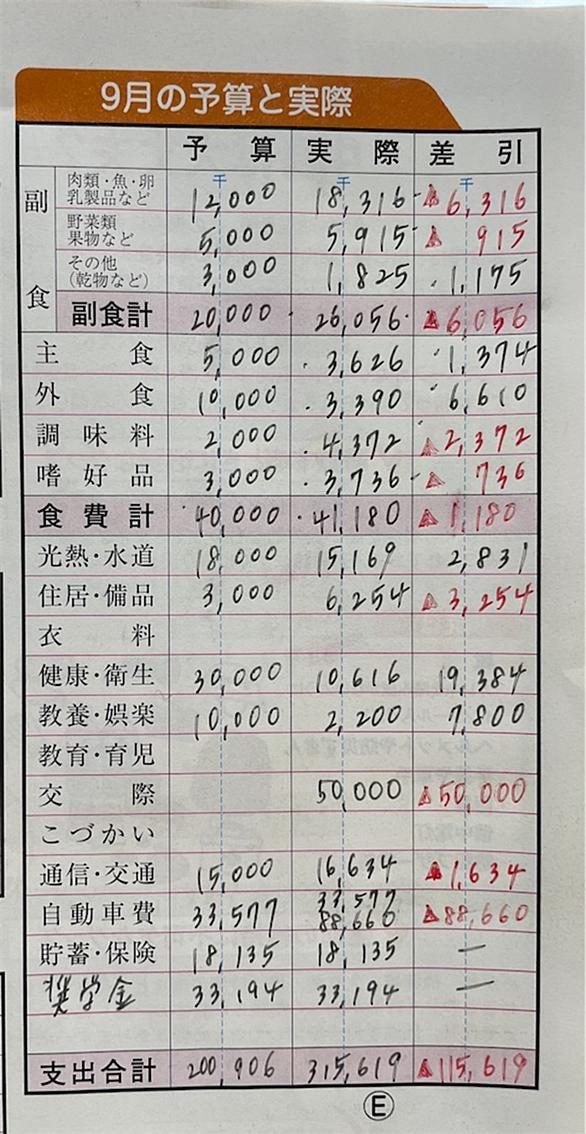 9月の予算と実際
予算 実際 差引
千 千 千
副食 肉類・魚・卵 乳製品など 12,000 18,316 ▲6,316
野菜類 果物など 5,000 5,915 ▲915
その他 (乾物など) 3,000 1,825 1,175
副食計 20,000 26,056 ▲6,056
主食 5,000 3,626 1,374
外食 10,000 3,390 6,610
調味料 2,000 4,372 ▲2,372
嗜好品 3,000 3,736 ▲736
食費計 40,000 41,180 ▲1,180
光熱・水道 18,000 15,169 2,831
住居・備品 3,000 6,254 ▲3,254
衣料
健康・衛生 30,000 10,616 19,384
教養・娯楽 10,000 2,200 7,800
教育・育児
交際 50,000 ▲50,000
こづかい
通信・交通 15,000 16,634 ▲1,634
自動車費 33,577 33,577 88,660 ▲88,660
貯蓄・保険 18,135 18,135 —
奨学金 33,194 33,194 —
支出合計 200,906 315,619 ▲115,619
Ⓔ